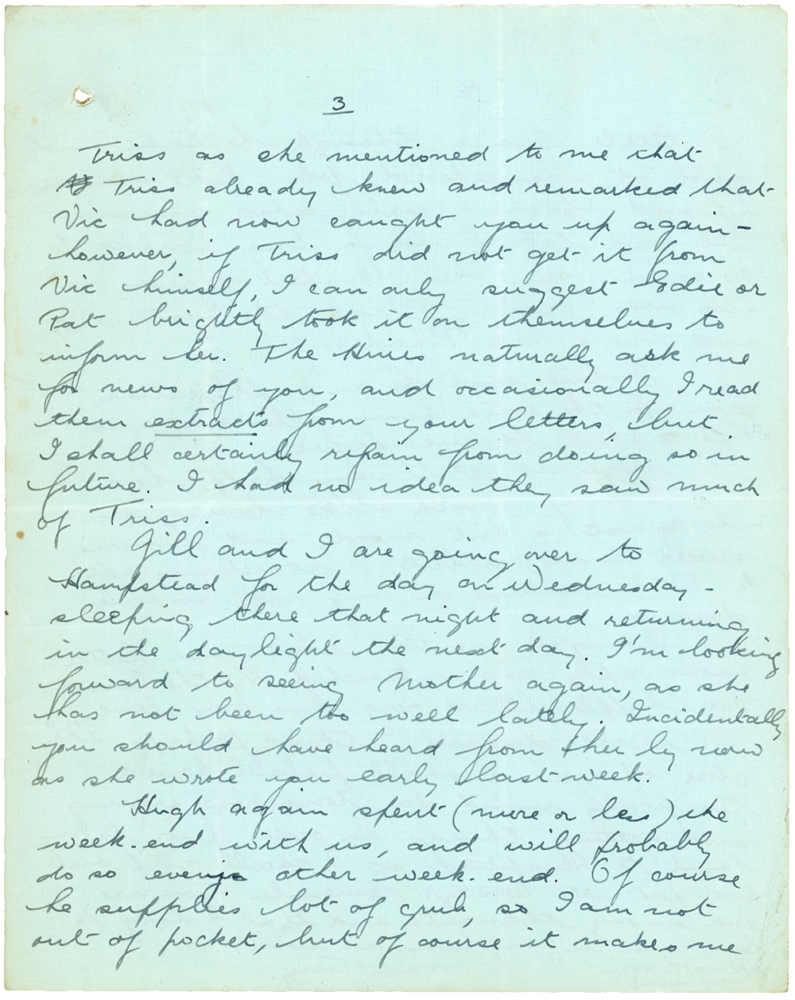 3
Triss as she mentioned to me that
Triss already knew and remarked that
Vic had now caught you up again -
however, if Triss did not get it from
Vic himself, I can only suggest Edie or
Pat brightly took it on themselves to
inform her. The Hines naturally ask me
for news of you, and occasionally I read
them extracts from your letters, but
I shall certainly refrain from doing so in
future. I had no idea they saw much
of Triss.
Gill and I are going over to
Hampstead for the day on Wednesday -
sleeping there that night and returning
in the daylight the next day. I'm looking
forward to seeing Mother again, as she
has not been too well lately. Incidentally
you should have heard from her by now
as she wrote you early last week.
Hugh again spent (more or less) the
week-end with us, and will probably
do so every other week-end. Of course
he supplies lot of grub, so I am not
out of pocket, but of course it makes me